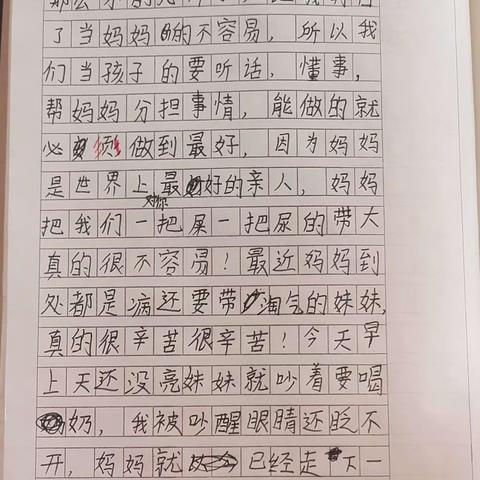 了当妈妈的不容易，所以我
们当孩子的要听话，懂事，
帮妈妈分担事情，能做的就
必须做到最好，因为妈妈
是世界上对你最好的亲人，妈妈
把我们一把屎一把尿的带大
真的很不容易！最近妈妈到
处都是病还要带淘气的妹妹，
真的很辛苦很辛苦！今天早
上天还没亮妹妹就吵着要喝
奶，我被吵醒眼睛还眨不
开，妈妈就已经走下一